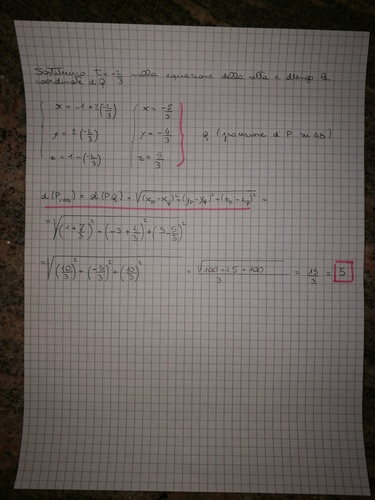 Sostituisco t = -2/3 nella equazione della retta e ottengo le
coordinate di Q
{ x = -1 + 2(-2/3) { x = -8/3
y = 2(-2/3) y = -4/3 Q (proiezione di P su AB)
z = 1 - (-2/3) z = 5/3
d(P, ) = d(PQ) = √((xp - xq)² + (yp - yq)² + (zp - zq)²) =
= √((1 + 7/3)² + (-3 + 4/3)² + (5 - 5/3)²)
= √((10/3)² + (-5/3)² + (10/3)²) = √(100 + 25 + 100)/3 = 15/3 = 5